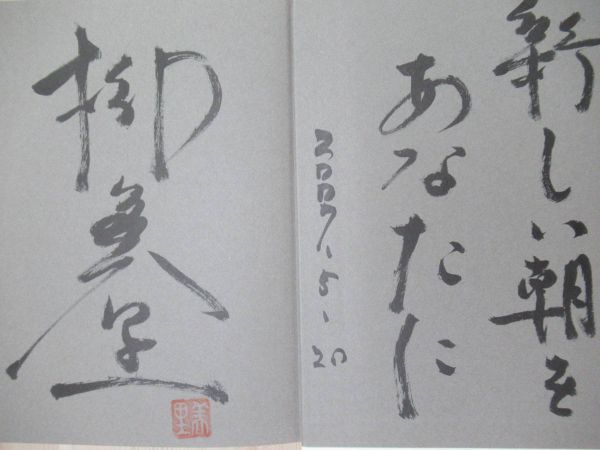 新しい朝を
あなたに
2007.5.20
柳美里
美里